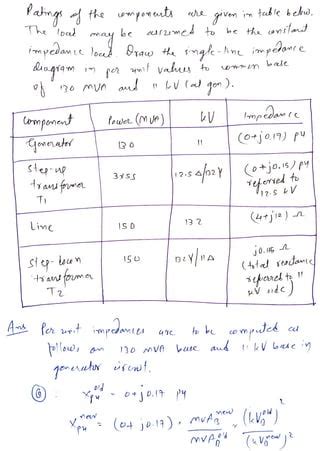 Ratings of the components are given in table below.
The load may be assumed to be the constant
impedance load. Draw the single-line impedance
diagram in per unit values to common base
of 130 MVA and 11 kV (at gen).
Component Power (MVA) kV Impedance
Generator 130 11 (0+j0.17) pu
Step-up transformer T1 3x55 12.5 Δ/132Y (0+j0.15) pu referred to 12.5 kV
Line 150 132 (4+j12) Ω
Step-down transformer T2 150 132Y/11Δ j0.15 Ω (total reactance referred to 11 kV side)
Ans Per unit impedances are to be computed as
follows on 130 MVA base and 11 kV base in
generator circuit.
G : Xpu^old = 0+j0.17 pu
Xpu^new = (0+j0.17) · MVA_B^new / MVA_B^old × (kV_B^old)² / (kV_B^new)²